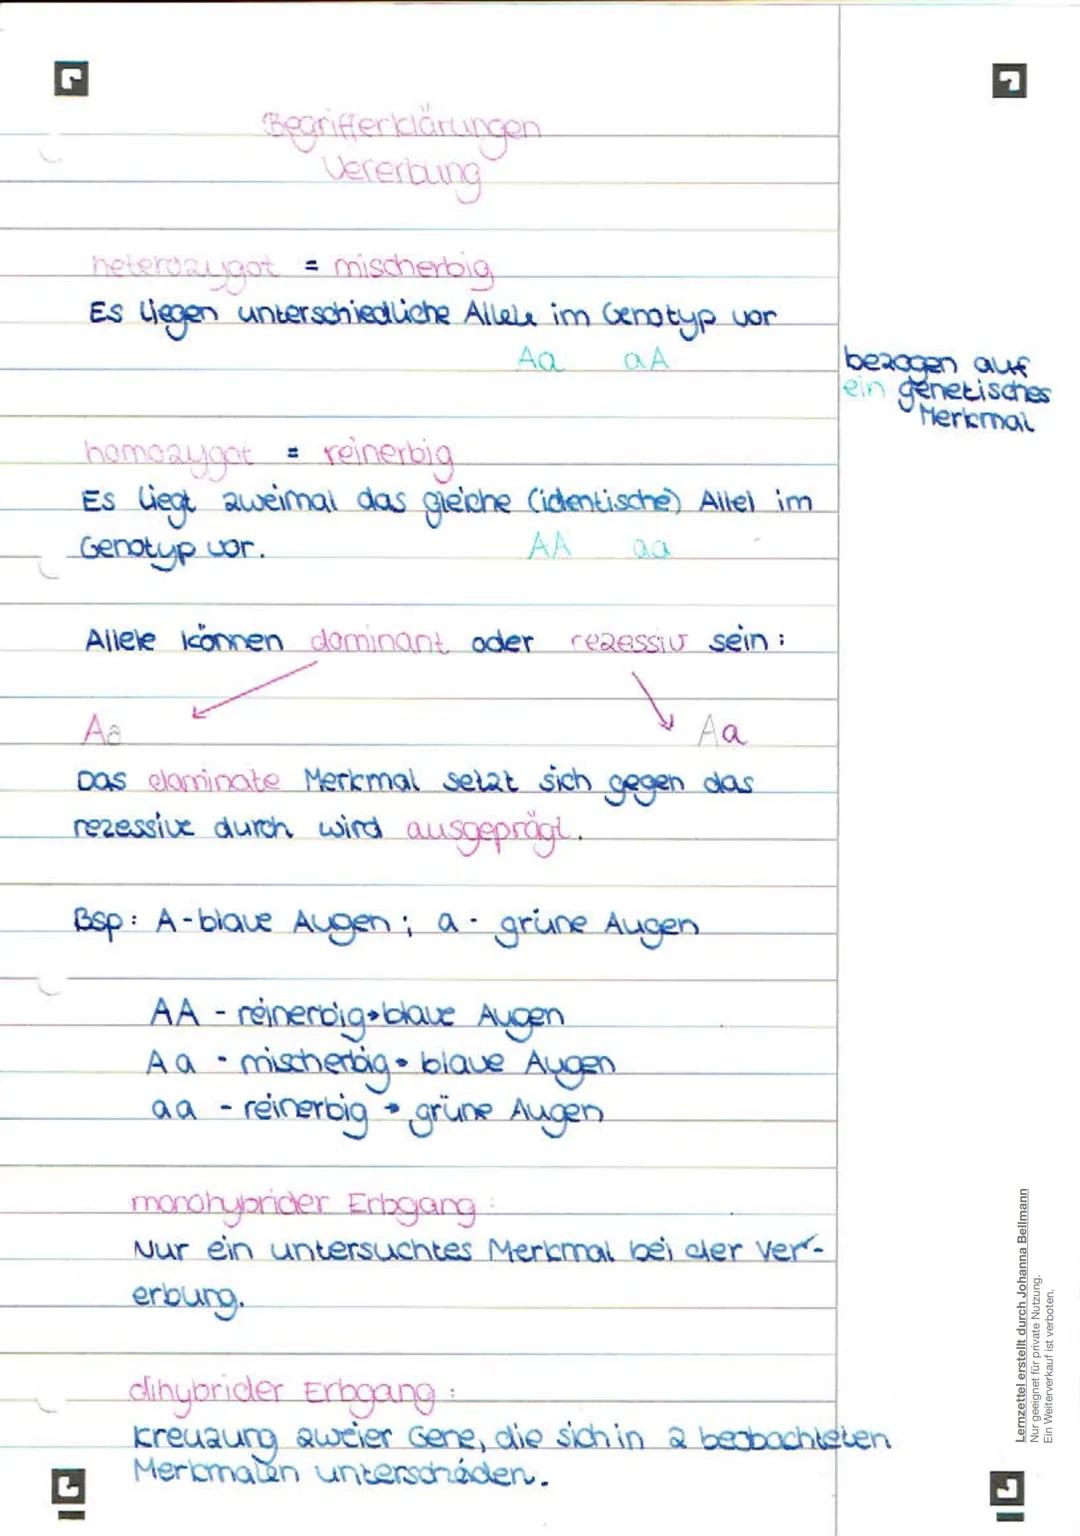 Begrifferklärungen
Vererbung
heterozygot = mischerbig
Es liegen unterschiedliche Allele im Genotyp vor
Aa aA
bezogen auf
ein genetisches
Merkmal
homozygot = reinerbig
Es liegt zweimal das gleiche (identische) Allel im
Genotyp vor. AA aa
Allele können dominant oder rezessiv sein:
Aa Aa
Das dominate Merkmal setzt sich gegen das
rezessive durch wird ausgeprägt.
Bsp: A-blaue Augen; a - grüne Augen
AA - reinerbig→blaue Augen
Aa - mischerbig→ blaue Augen
aa - reinerbig → grüne Augen
monohybrider Erbgang:
Nur ein untersuchtes Merkmal bei der Ver-
erbung.
dihybrider Erbgang:
Kreuzung zweier Gene, die sich in 2 beobachteten
Merkmalen unterscheiden.
Lernzettel erstellt durch Johanna Bellmann
Nur geeignet für private Nutzung.
Ein Weiterverkauf ist verboten.